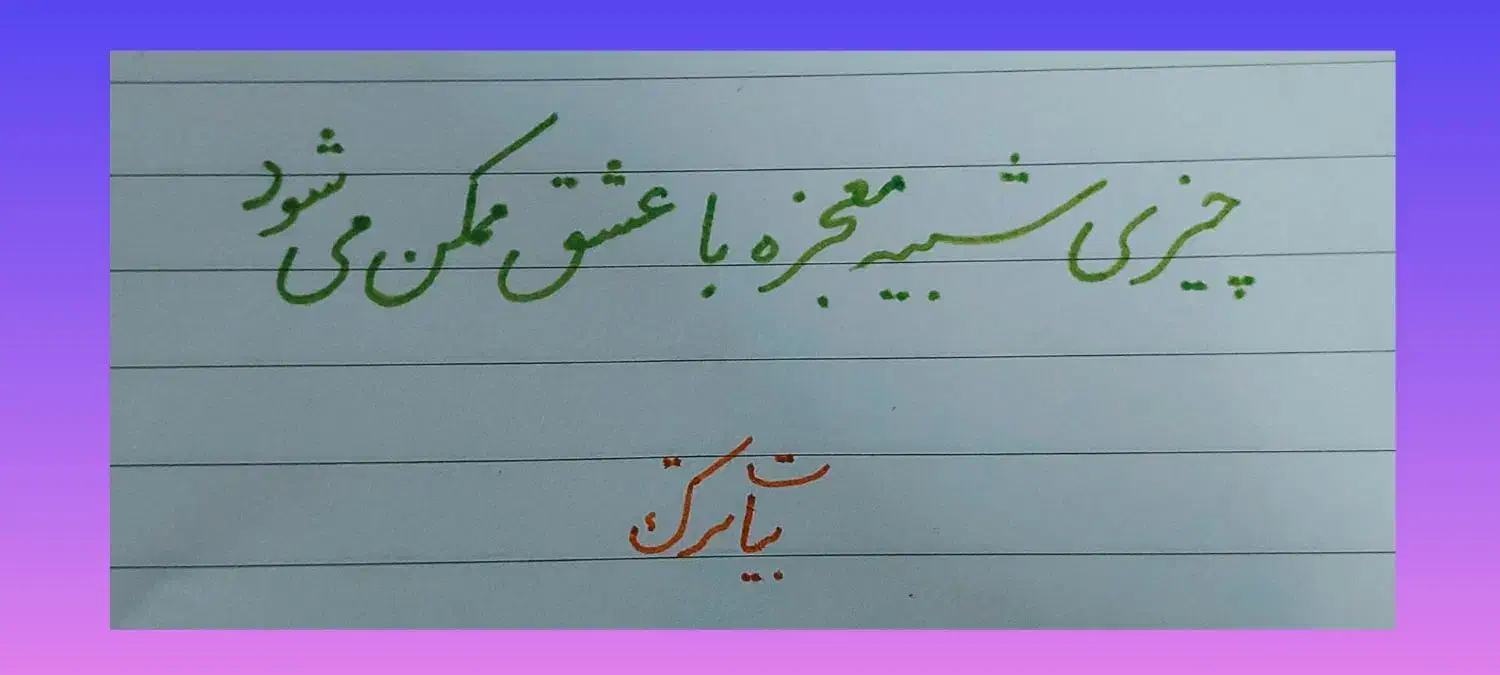 چیزی شبیه معجزه با عشق ممکن می شود
بیات ترک